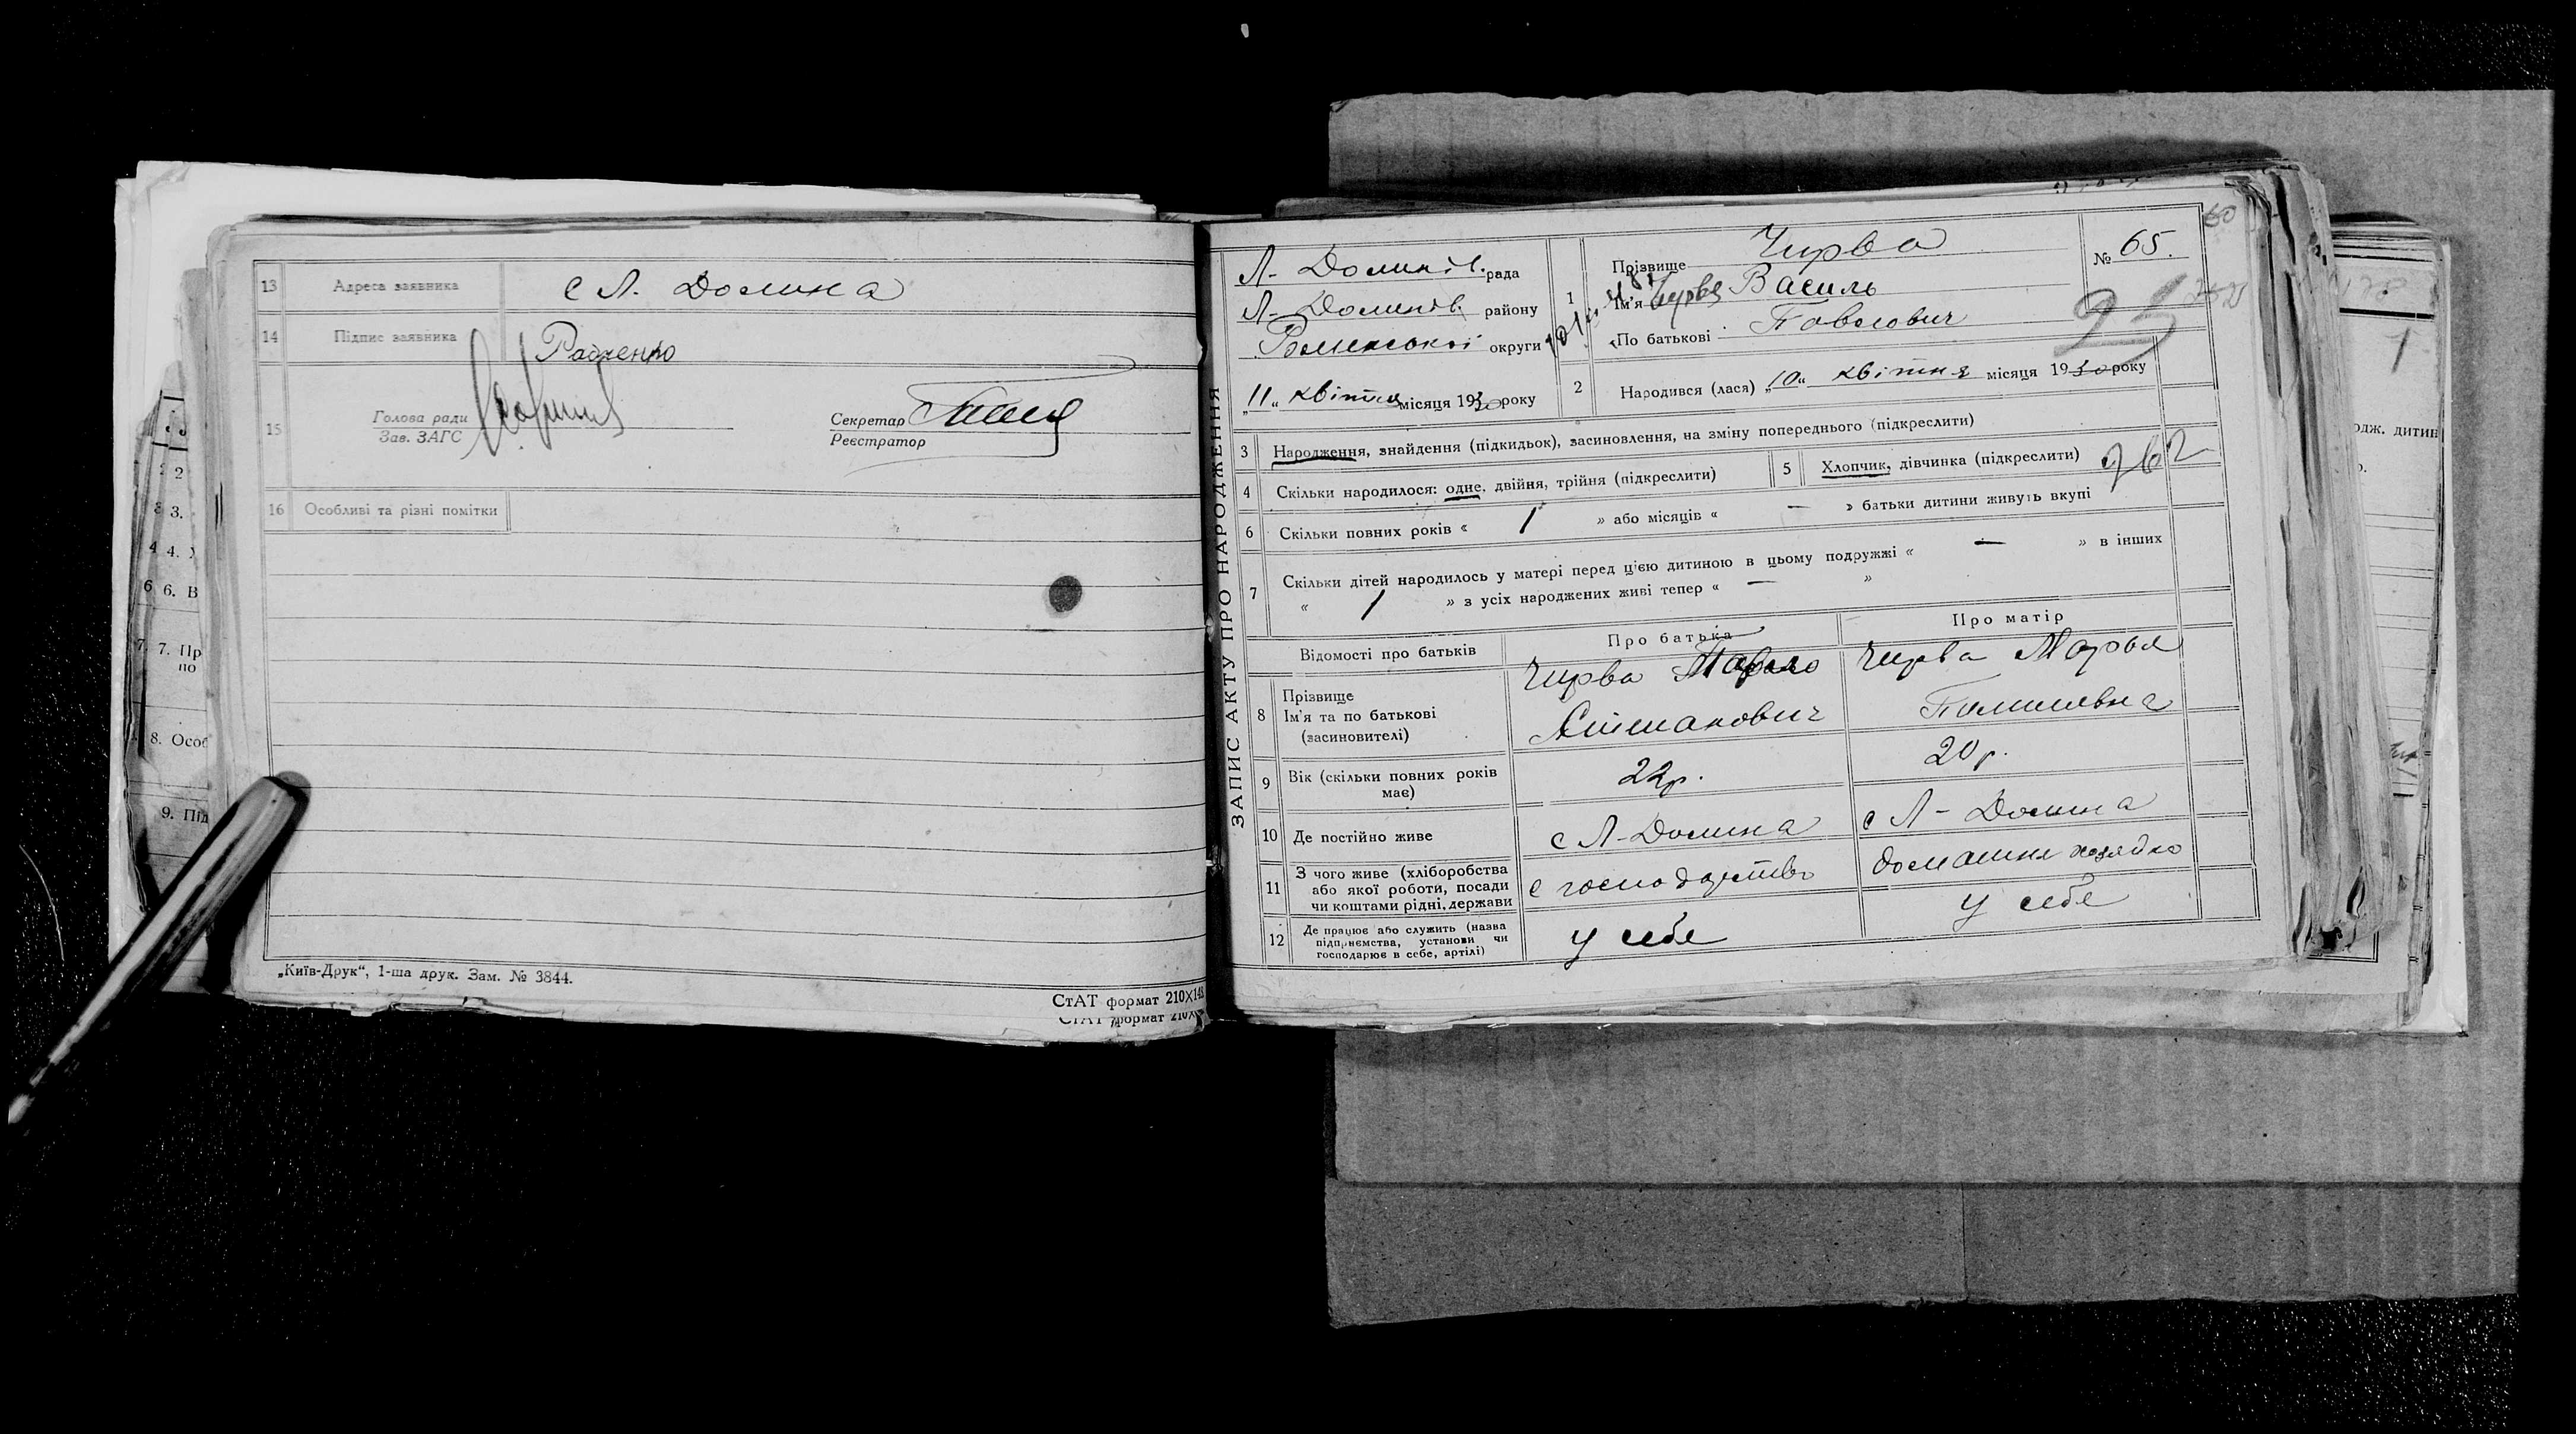 13 Адреса заявника с Л. Долина
14 Підпис заявника Радченко
15 Голова ради
Зав. ЗАГС
Секретар
Реєстратор
16 Особливі та різні помітки
„Київ-Друк“, 1-ша друк. Зам. № 3844.
СтАТ формат 210Х148
ЗАПИС АКТУ ПРО НАРОДЖЕННЯ
Л- Долинів. рада
Л- Долинів. району
Роменської округи
„11“ квітня місяця 1930 року
1 Прізвище Чирва
Ім'я Василь
По батькові Павлович
№ 65.
60
95
262
2 Народився (лася) „10“ квітня місяця 1930 року
3 Народження, знайдення (підкидьок), засиновлення, на зміну попереднього (підкреслити)
4 Скільки народилося: одне. двійня, трійня (підкреслити)
5 Хлопчик, дівчинка (підкреслити)
6 Скільки повних років « 1 » або місяців « — » батьки дитини живуть вкупі
7 Скільки дітей народилось у матері перед цією дитиною в цьому подружжі « — » в інших
« 1 » з усіх народжених живі тепер « — »
Відомості про батьків Про батька Про матір
8 Прізвище
Ім'я та по батькові
(засиновителі)
Чирва Павло
Чирва Марья
9 Вік (скільки повних років має) 22р. 20р.
10 Де постійно живе с Л-Долина с Л- Долина
11 З чого живе (хліборобства
або якої роботи, посади
чи коштами рідні, держави
с господарства
домашня
12 Де працює або служить (назва
підприємства, установи чи
господарює в себе, артілі)
у себе
у себе